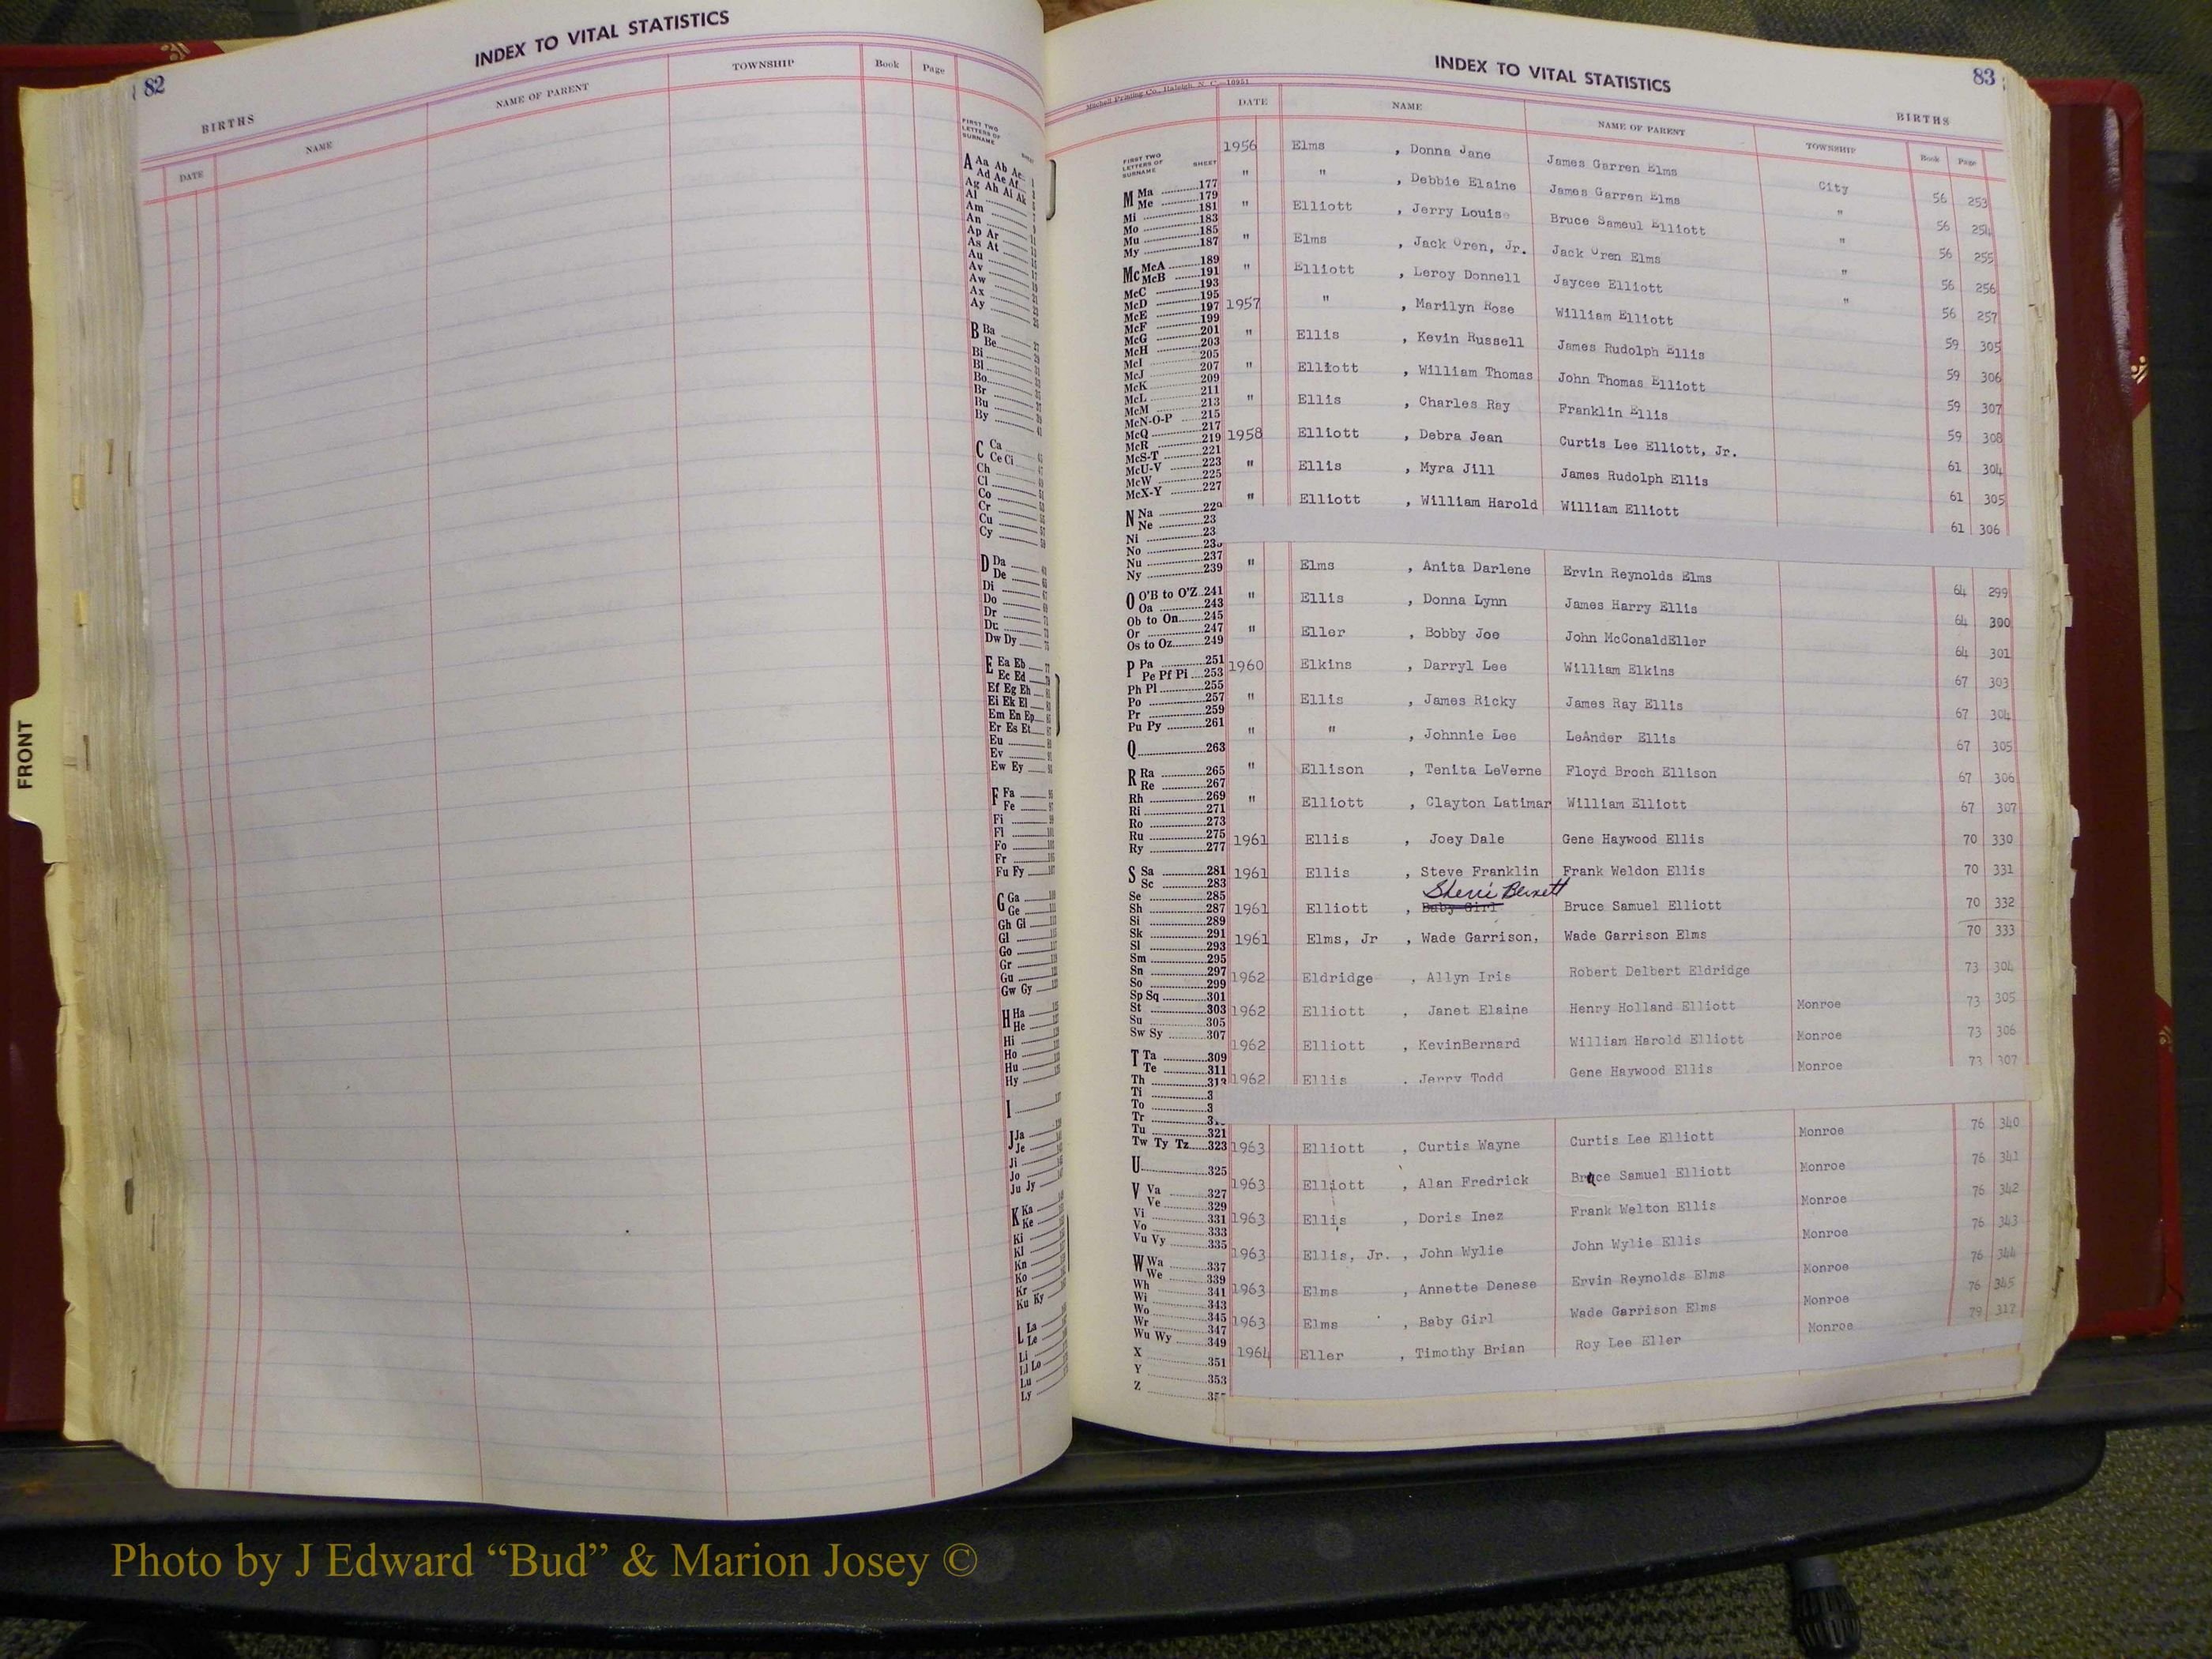 82
INDEX TO VITAL STATISTICS
BIRTHS
DATE NAME NAME OF PARENT TOWNSHIP Book Page
FRONT
FIRST TWO
LETTERS OF
SURNAME
A Aa Ab Ac
Ad Ae Af
Ag Ah Ai Ak
Al
Am
An
Ap Ar
As At
Au
Av
Aw
Ax
Ay
B Ba
Be
Bi
Bl
Bo
Br
Bu
By
C Ca
Ce Ci
Ch
Cl
Co
Cr
Cu
Cy
D Da
De
Di
Do
Dr
Du
Dw Dy
E Ea Eb
Ec Ed
Ef Eg Eh
Ei Ek El
Em En Ep
Er Es Et
Eu
Ev
Ew Ey
F Fa
Fe
Fi
Fl
Fo
Fr
Fu Fy
G Ga
Ge
Gh Gi
Gl
Go
Gr
Gu
Gw Gy
H Ha
He
Hi
Ho
Hu
Hy
I
J Ja
Je
Ji
Jo
Ju Jy
K Ka
Ke
Ki
Kl
Kn
Ko
Kr
Ku Ky
L La
Le
Li
Ll Lo
Lu
Ly
INDEX TO VITAL STATISTICS
83
Mitchell Printing Co., Raleigh, N. C.—10951
BIRTHS
DATE NAME NAME OF PARENT TOWNSHIP Book Page
FIRST TWO
LETTERS OF
SURNAME SHEET
M Ma 177
Me 179
Mi 181
Mo 183
Mu 185
My 187
Mc McA 189
McB 191
McC 193
McD 195
McE 197
McF 199
McG 201
McH 203
McI 205
McJ 207
McK 209
McL 211
McM 213
McN-O-P 215
McQ 217
McR 219
McS-T 221
McU-V 223
McW 225
McX-Y 227
N Na 229
Ne 23
Ni 23
No 235
Nu 237
Ny 239
O O'B to O'Z 241
Oa 243
Ob to On 245
Or 247
Os to Oz 249
P Pa 251
Pe Pf Pi 253
Ph Pl 255
Po 257
Pr 259
Pu Py 261
Q 263
R Ra 265
Re 267
Rh 269
Ri 271
Ro 273
Ru 275
Ry 277
S Sa 281
Sc 283
Se 285
Sh 287
Si 289
Sk 291
Sl 293
Sm 295
Sn 297
So 299
Sp Sq 301
St 303
Su 305
Sw Sy 307
T Ta 309
Te 311
Th 313
Ti 3
To 3
Tr
Tu 321
Tw Ty Tz 323
U 325
V Va 327
Ve 329
Vi 331
Vo 333
Vu Vy 335
W Wa 337
We 339
Wh 341
Wi 343
Wo 345
Wr 347
Wu Wy 349
X 351
Y 353
Z 355
1956 Elms , Donna Jane James Garren Elms City 56 253
" " , Debbie Elaine James Garren Elms " 56 254
" Elliott , Jerry Louise Bruce Sameul Elliott " 56 255
" Elms , Jack Oren, Jr. Jack Oren Elms " 56 256
" Elliott , Leroy Donnell Jaycee Elliott " 56 257
1957 " , Marilyn Rose William Elliott 59 305
" Ellis , Kevin Russell James Rudolph Ellis 59 306
" Elliott , William Thomas John Thomas Elliott 59 307
" Ellis , Charles Ray Franklin Ellis 59 308
1958 Elliott , Debra Jean Curtis Lee Elliott, Jr. 61 304
" Ellis , Myra Jill James Rudolph Ellis 61 305
" Elliott , William Harold William Elliott 61 306
" Elms , Anita Darlene Ervin Reynolds Elms 64 299
" Ellis , Donna Lynn James Harry Ellis 64 300
" Eller , Bobby Joe John McConaldEller 64 301
1960 Elkins , Darryl Lee William Elkins 67 303
" Ellis , James Ricky James Ray Ellis 67 304
" " , Johnnie Lee LeAnder Ellis 67 305
" Ellison , Tenita LeVerne Floyd Broch Ellison 67 306
" Elliott , Clayton Latimar William Elliott 67 307
1961 Ellis , Joey Dale Gene Haywood Ellis 70 330
1961 Ellis , Steve Franklin Frank Weldon Ellis 70 331
Sherri
1961 Elliott , Baby Girl Bruce Samuel Elliott 70 332
1961 Elms, Jr , Wade Garrison, Wade Garrison Elms 70 333
1962 Eldridge , Allyn Iris Robert Delbert Eldridge 73 304
1962 Elliott , Janet Elaine Henry Holland Elliott Monroe 73 305
1962 Elliott , KevinBernard William Harold Elliott Monroe 73 306
1962 Ellis , Jerry Todd Gene Haywood Ellis Monroe 73 307
1963 Elliott , Curtis Wayne Curtis Lee Elliott Monroe 76 340
1963 Elliott , Alan Fredrick Bruce Samuel Elliott Monroe 76 341
1963 Ellis , Doris Inez Frank Welton Ellis Monroe 76 342
1963 Ellis, Jr. , John Wylie John Wylie Ellis Monroe 76 343
1963 Elms , Annette Denese Ervin Reynolds Elms Monroe 76 344
1963 Elms , Baby Girl Wade Garrison Elms Monroe 76 345
1964 Eller , Timothy Brian Roy Lee Eller Monroe 79 317
Photo by J Edward “Bud” & Marion Josey ©